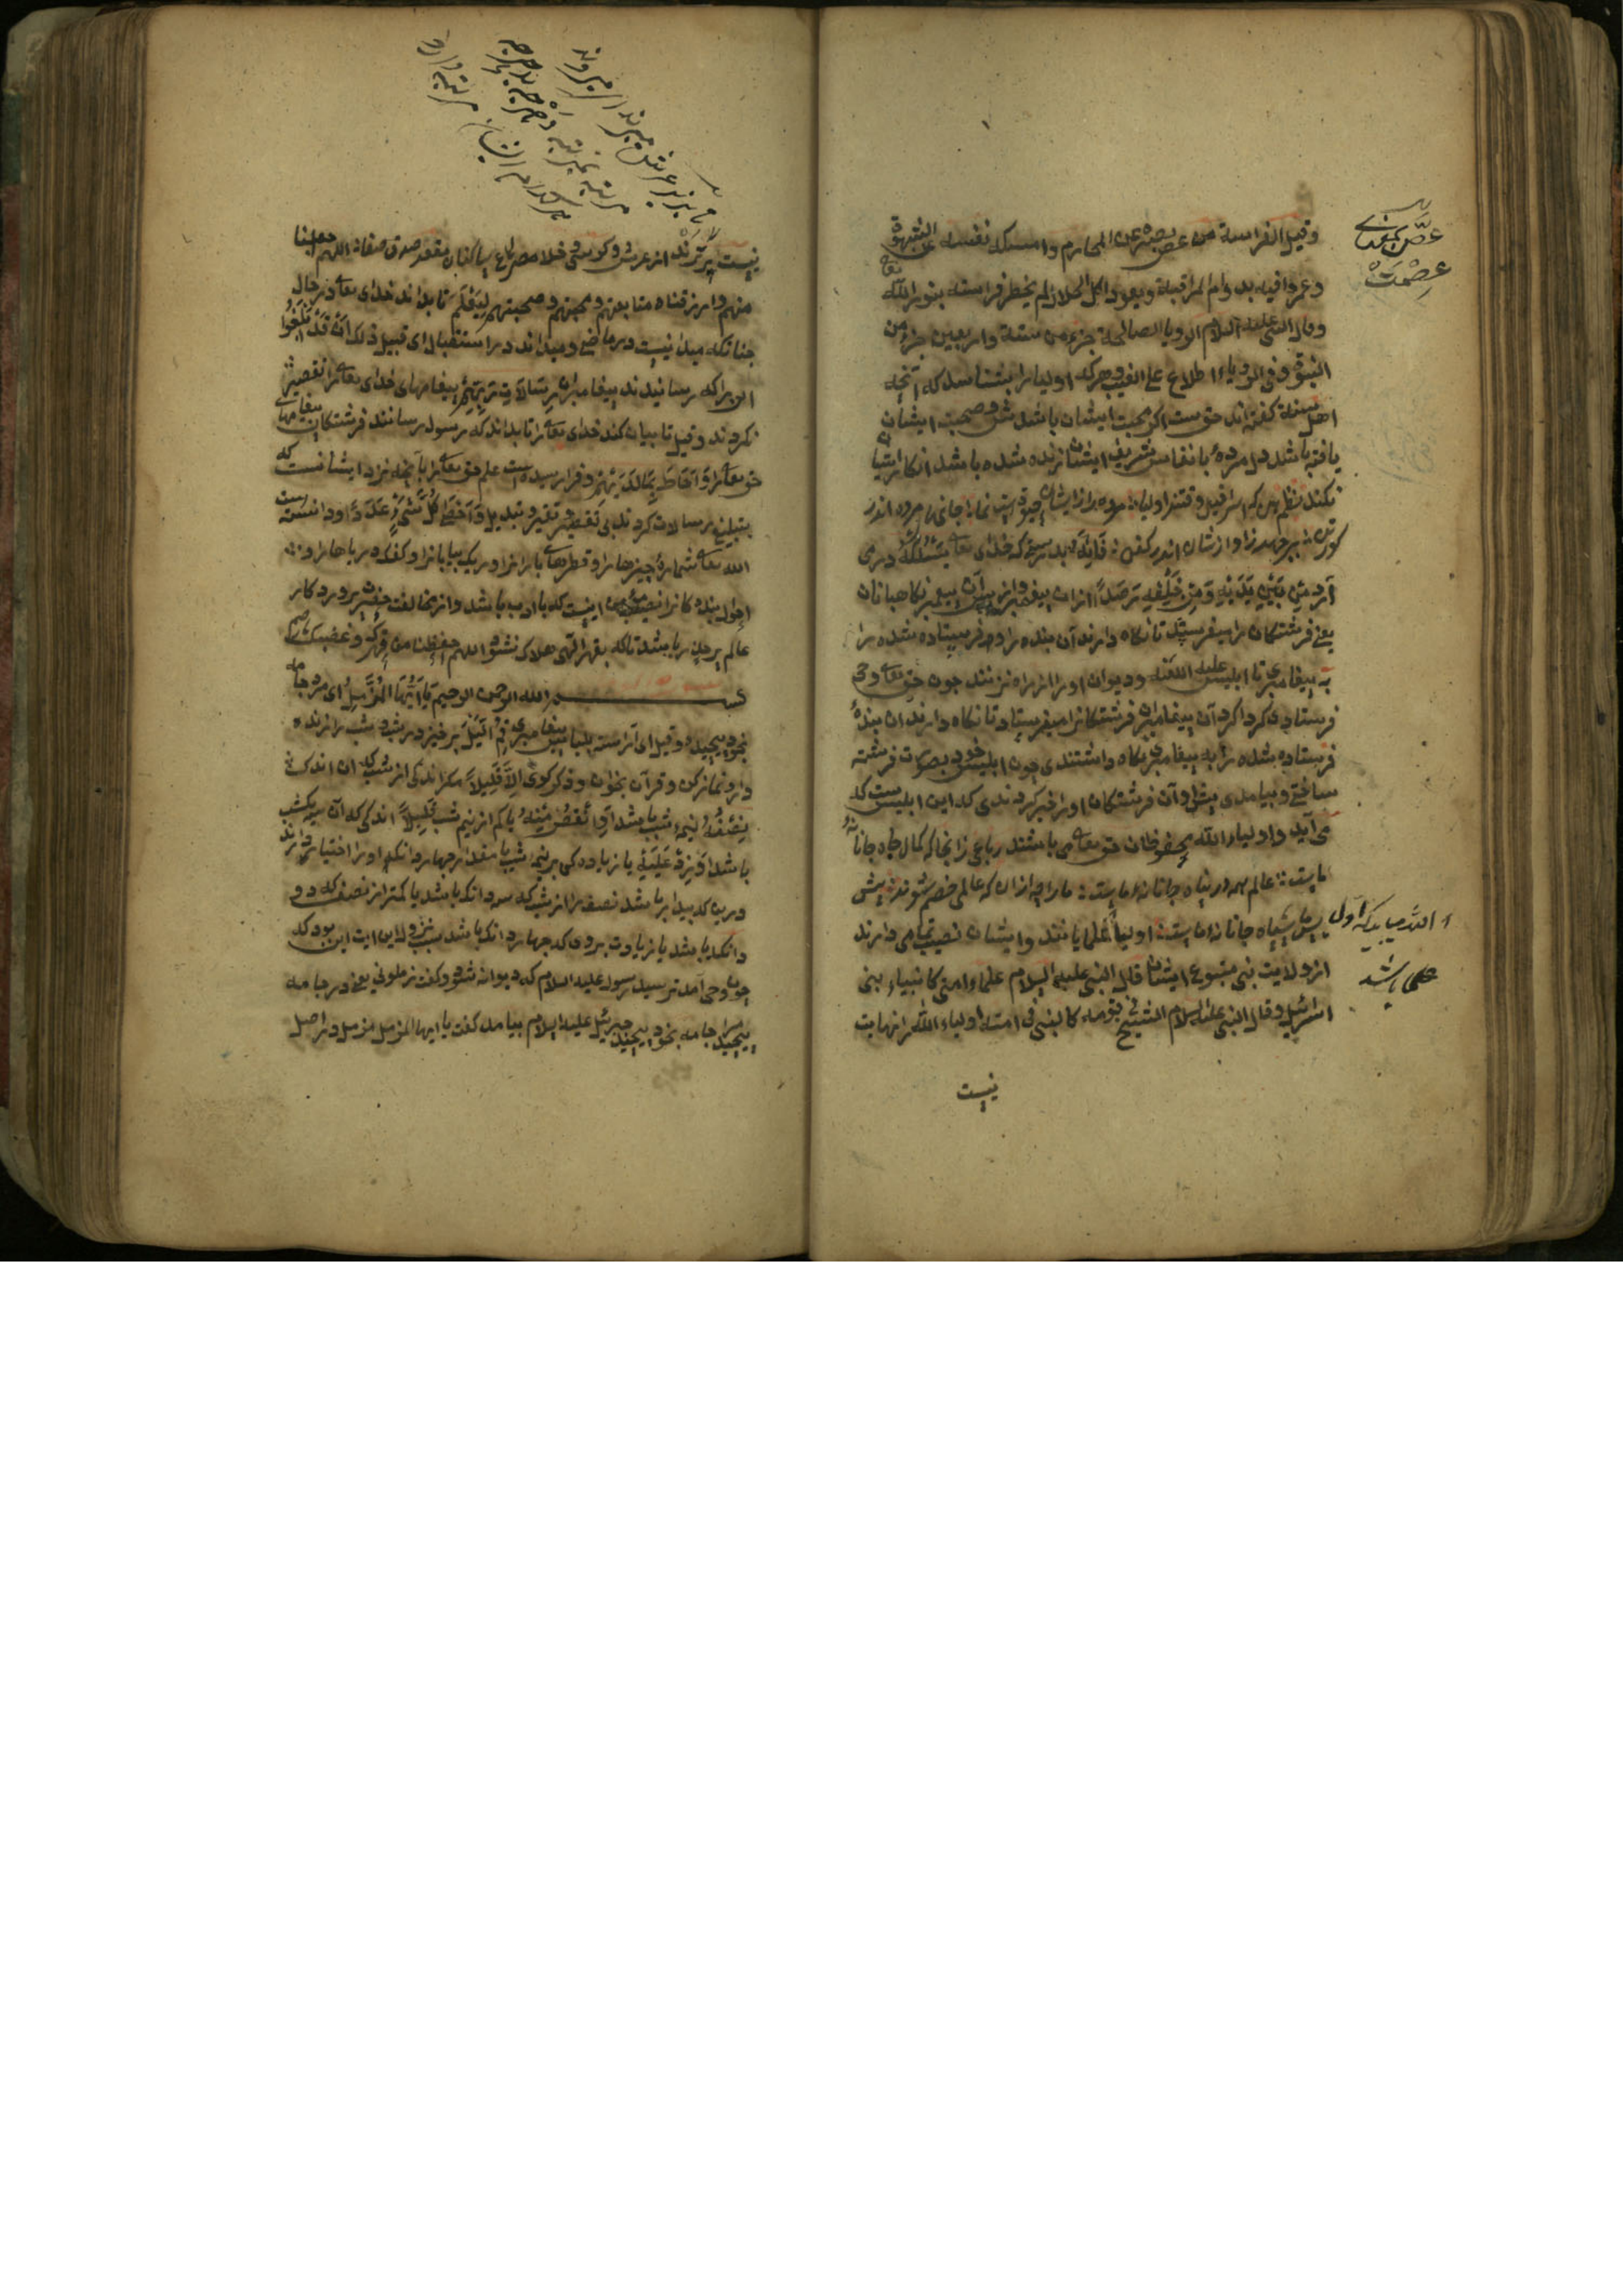 وقیل الفراسة من غض بصره عن المحارم وامسک نفسه عن الشهوة
وعمر وافیه بدوام المراقبة ویعود اکل الحلال لم یخطر فراسته بنور الله تعا
وقال النبی علیه السلام الرویا الصالحة جزء من ستة واربعین جزء من
النبوة وفی الرویاء اطلاع علی الغیب وهرکه اولیا را بشناسد که آنچه
اهل سنة گفته اند حق ست اگر محبت ایشان باشدش وصحبت ایشان
یافته باشد دل مردۀ بانفاس شریف ایشان زنده شده باشد انکار اینها
نکند نظم هین که اسرافیل وقتند اولیا مرده را زایشان حیوتست ونما جانهای مرده اندر
گور تن برجهد ز اواز شان اندر کفن فَاِنَّهُ بدرستی که خدای تعا یَسْلُکُ در می
آرد مِنْ بَیْنِ یَدَیْهِ وَمِنْ خَلْفِهِ رَصَدًا از ان پیغمبر واز پس آن پیغمبر نکاهبانان
یعنی فرشتکان را میفرستد تا نکاه دارند آن بنده را وفرستاده شده را
به پیغامبری تا ابلیس علیه اللعنه ودیوان او را از راه نزنند چون حق تعا وحی
فرستادی گرداگرد آن پیغامبران فرشتکانرا میفرستاد تا نکاه دارند ان بندۀ
فرستاده شده را به پیغامبری نکاه داشتندی چون ابلیس خود بصورت فرشته
ساختی وبیامدی پیش او آن فرشتکان او را خبر کردندی که این ابلیس ست که
می آید واولیاء الله محفوظان حق تعا می باشند رباعی زانجا که کمال جاه جانانۀ
ماست عالم همه در پناه جانانه ماست ما را چه ازان که عالمی خصم شوند پیش
پس ما سپاه جانانه ماست اولیا علما یانند وایشان نصیب تمام می دارند
از ولایت نبی متبوع ایشان قال النبی علیه السلام علماء امتی کانبیاء بنی
اسرائیل وقال النبی علیه السلام الشیخ فی قومه کالنبی فی امته اولیاء الله را نهایت
نیست
عصمت
نیست برترند از عرش وکرسی وخلا ساکنان مقعد صدق صفا اللهم اجعلنا
منهم وارزقنا متابعتهم ومحبتهم وصحبتهم لِیَعْلَمَ تا بداند خدای تعا در حال
چنانکه میدانست در ماضی ومیداند در استقبال ای قبیل ذلک اَنْ قَدْ اَبْلَغُوا
ان را که رسانیدند پیغامبران رِسَالَاتِ رَبِّهِمْ پیغامهای خدای تعا را تقصیر
نکردند وقیل تا بیان کند خدای تعا را تا بداند که رسول رسانند فرشتکان پیغامهای
حق تعا را وَاَحَاطَ بِمَا لَدَیْهِمْ وفرارسیده است علم حق تعا را بآنچه نزد ایشانست که
بتبلیغ رسالات کردند بی تقصیر وتغییر وتبدیل وَاَحْصَی کُلَّ شَیْءٍ عَدَدًا ودانسته است
الله تعا شمارۀ چیزها را وقطرهای بارانرا وریک بیابانرا وکف دریاها را
احوال بندۀ کانرا نصیب مؤمن اینست که با ادب باشد واز مخالفت حضرت پروردکار
عالم پر حذر باشد تا که بقهر الهی هلاک نشود اللهم احفظنا من قهرک وغضبک
بسم الله الرحمن الرحیم یَا اَیُّهَا الْمُزَّمِّلُ ای مرد جامه
بخود پیچیده وقیل ای آراسته بلباس پیغامبری قُمِ اللَّیْلَ برخیز در شب وشب را زنده
دار ونماز کن وقرآن بخوان وذکر کوی اِلَّا قَلِیلًا مکر اندکی از شب که ان اندک
نِصْفَهُ نیمۀ شب باشد اَوِ انْقُصْ مِنْهُ یا کم از نیم شب قَلِیلًا اندکی که آن سه یک شب
باشد اَوْ زِدْ عَلَیْهِ یا زیاده کن بر نیمۀ شب تا مقدار چهار دانک او را اختیار دادند
درین که بیدار باشد نصف را از شب که سه دانک باشد یا کمتر از نصف که دو
دانک باشد یا زیادت بروی که چهار دانک باشد سبب نزول این ایت این بود که
چون وحی آمد ترسید رسول علیه السلام که دیوانه شود وکفت زملونی یعنی در جامه
پیچید مرا جامه بخود پیچید جبرئیل علیه السلام بیامد کفت یا ایها المزمل مزمل در اصل